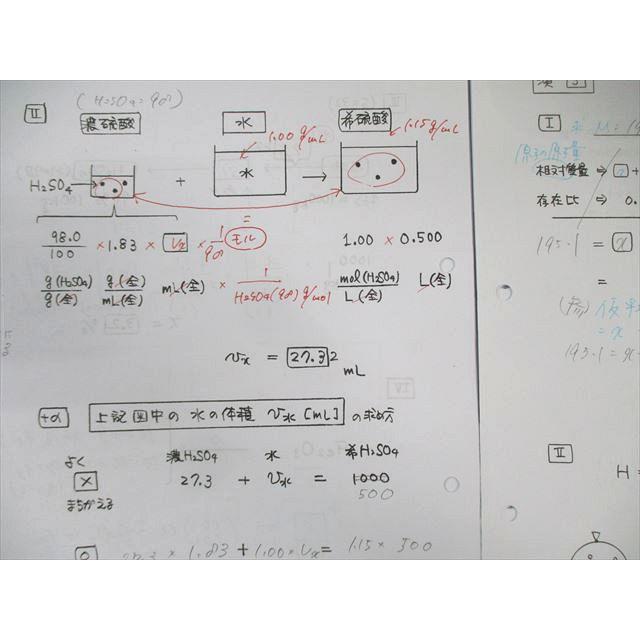 (H₂SO₄=98)
II
濃硫酸 水 希硫酸
1.00 g/mL 1.15 g/mL
H₂SO₄ + 水 →
=
98.0/100 × 1.83 × Vx × 1/98 モル 1.00 × 0.500
g(H₂SO₄)/g(全) g(全)/mL(全) mL(全) × 1/H₂SO₄(98) g/mol mol(H₂SO₄)/L(全) L(全)
Vx = 27.32 mL
+α 上記図中の水の体積 V水 [mL] の求め方
濃H₂SO₄ 水 希H₂SO₄
よく
× 27.3 + V水 = 1000
500
まちがえる
27.3 × 1.83 + 1.00 × Vx = 1.15 × 500
I
相対質量 ⇒
存在比 ⇒ 0.
195.1 = x
=
(参)
= x
195.1 = x
II
H =